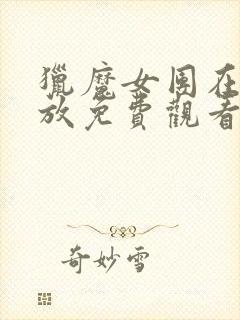 獵魔女團在
放免費觀看
奇妙雪